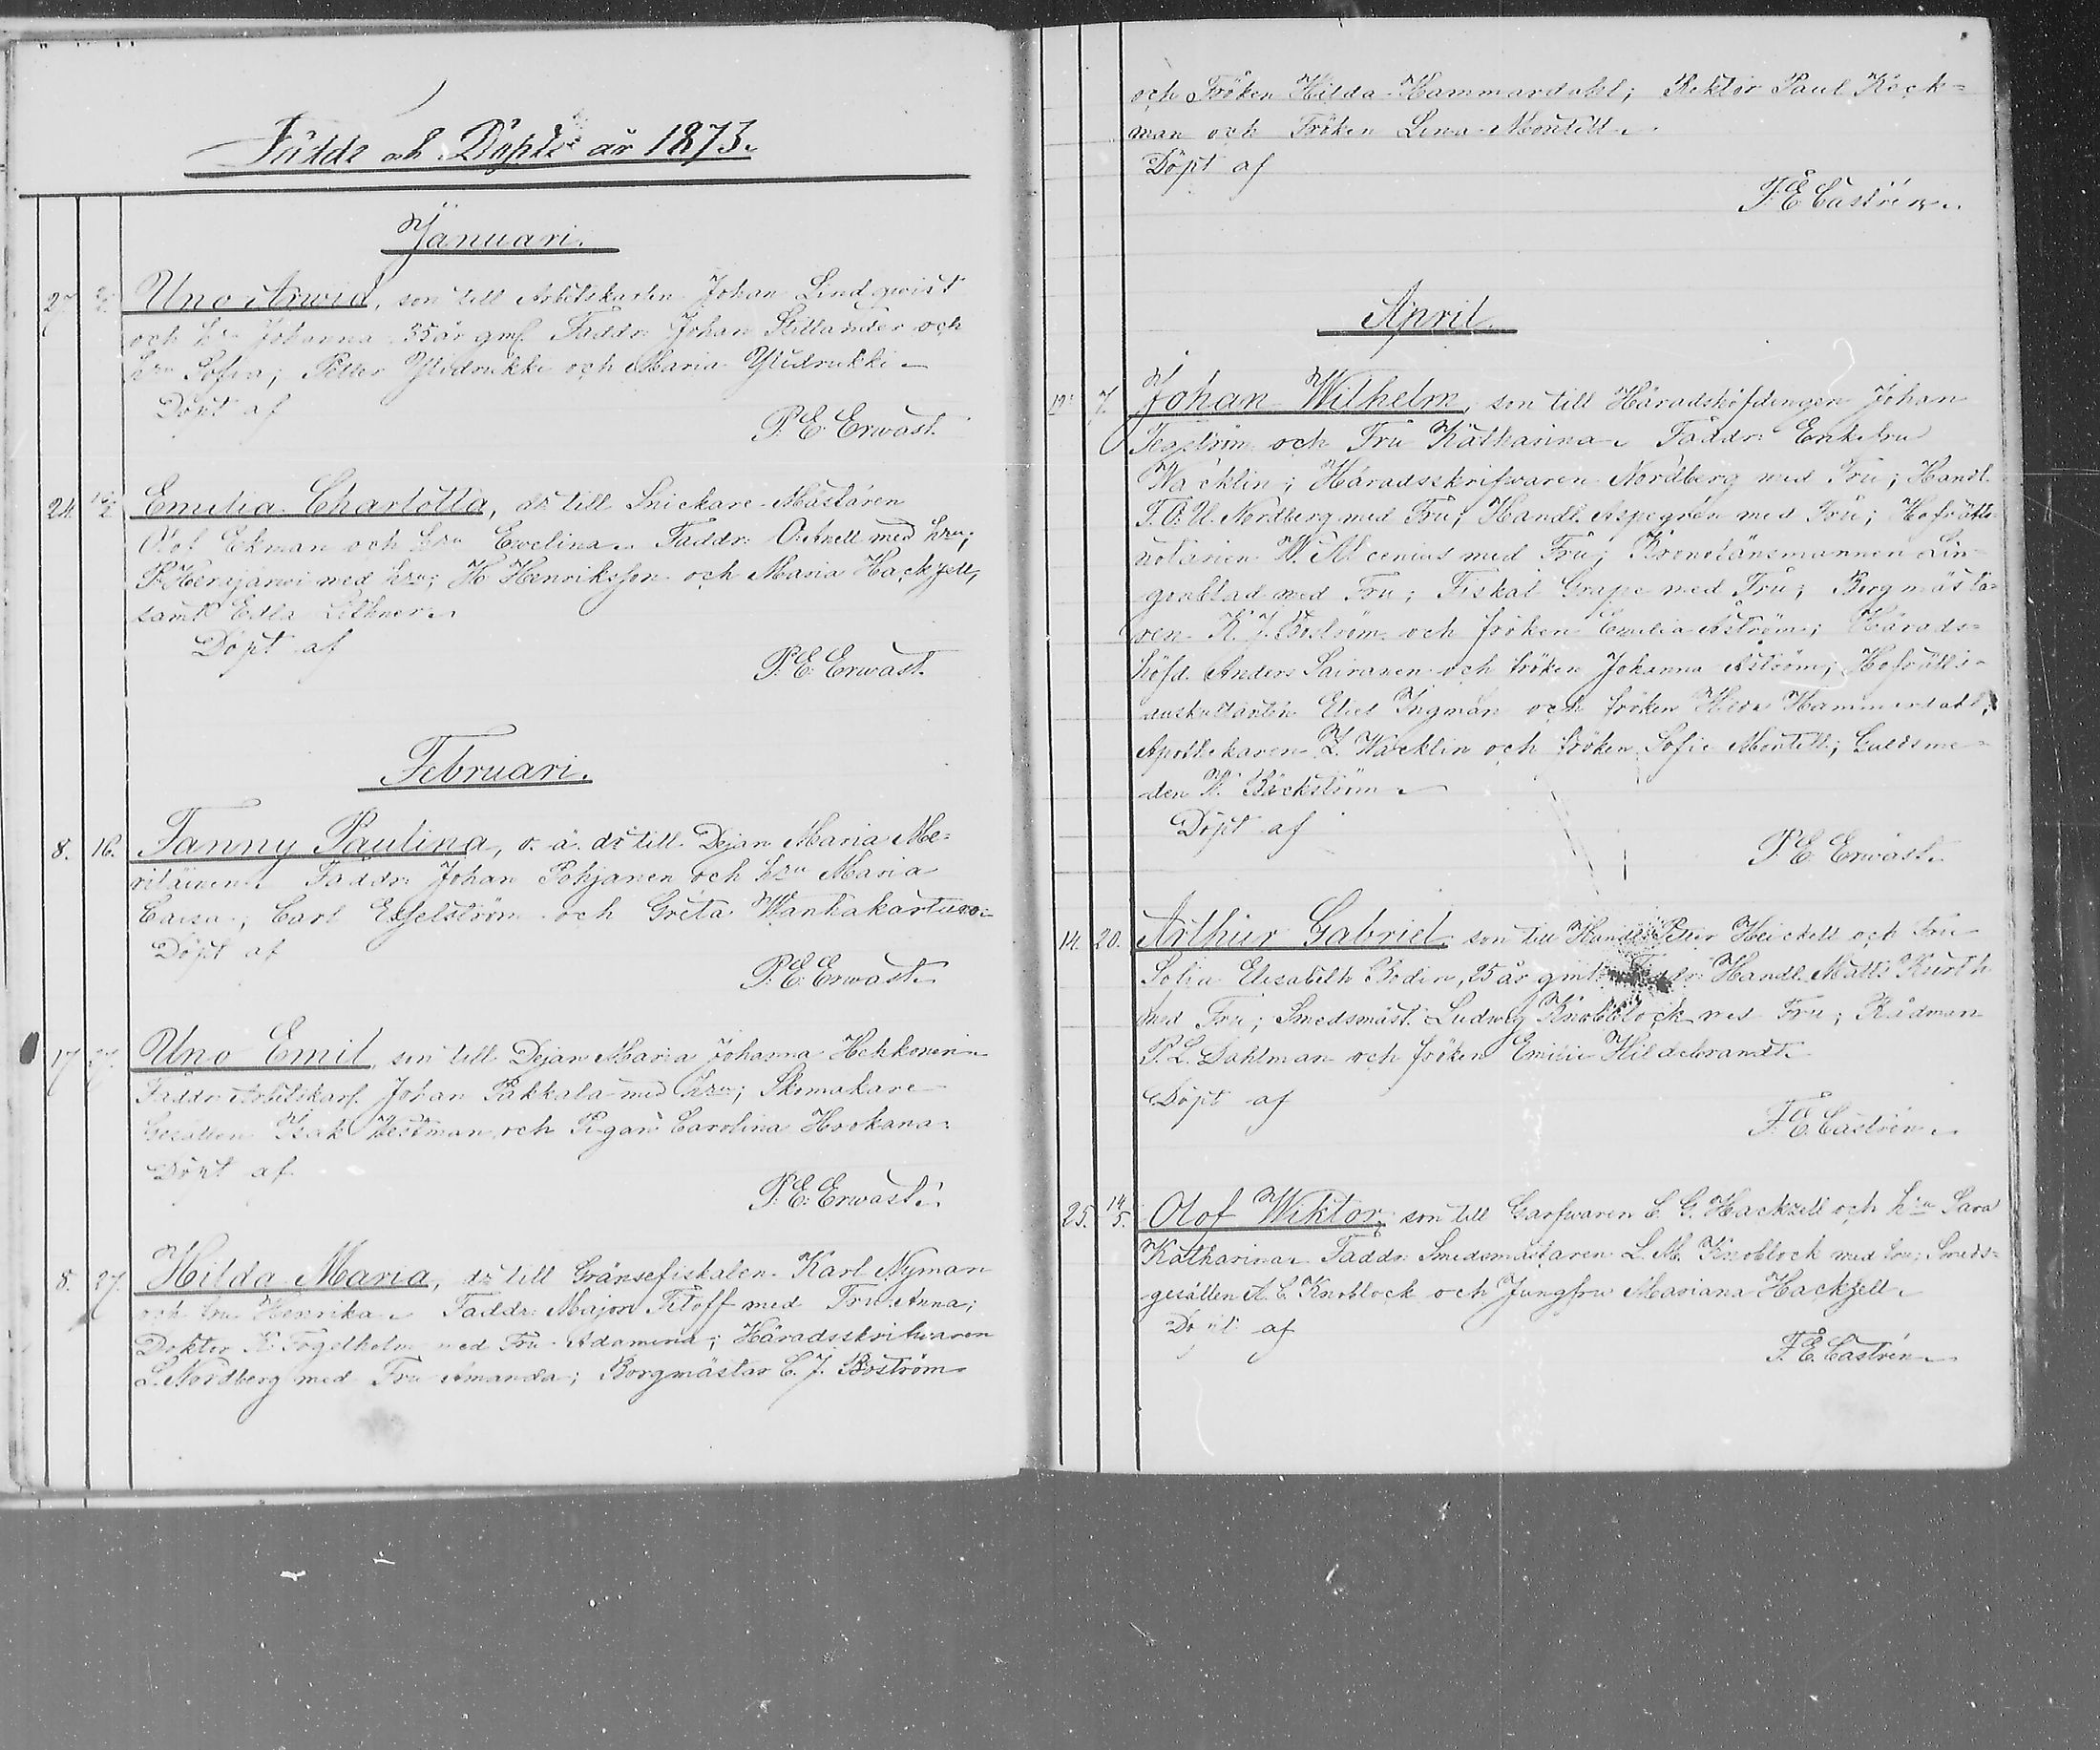 Födde och Döpte år 1873.
Januari.
27 Uno Arwid, son till Arbetskarlen Johan Lindqwist
och hru Johanna 35 år gml. Faddr: Johan Stillander och
hru Sofia; Petter Ylidrukki och Maria Ylidrukki.
Döpt af
P. E. Erwast.
24. Emilia Charlotta, dr till Snickare-Mästaren
Olof Ekman och hru Ewelina. Faddr: O. Anell med hru;
P. Herajärwi med hru; H. Henriksson och Maria Hackzell,
samt Edla
Döpt af
P. E. Erwast.
Februari.
8. 16. Fanny Paulina, o. ä. dr till Dejan Maria Me-
riläinen. Faddr: Johan Pohjanen och hru Maria
Caisa; Carl och Greta Wanhakartano
Döpt af
P. E. Erwast.
17 27. Uno Emil, son till Dejan Maria Johanna Heikkonen
Faddr: Arbetskarl. Johan Pakkala med hru; Skomakare
Gesällen Isak Westman och Pigan Carolina Hookana.
Döpt af
P. E. Erwast.
8. 27. Hilda Maria, dr till Gränsefiskalen Karl Nyman
och fru Henrika. Faddr: Major Titoff med Fru Anna;
Doktor K. Fogelholm med Fru Adamina; Häradsskrifwaren
L. Nordberg med Fru Amanda; Borgmästar C. J. Boström
och Fröken Hilda Hammardahl; Rektor Paul Röck-
man och Fröken Lina Montell.
Döpt af
F. E. Castrén.
April.
19 7. Johan Wilhelm, son till Häradshöfdingen Johan
Tegström och Fru Katharina. Faddr: Enkefru
Wacklin; Häradsskrifwaren Nordberg med Fru; Handl.
F. O. U. Nordberg med Fru; Handl. Aspegrén med Fru; Hofrätts-
notarien W. Alcenius med Fru; Kronolänsmannen Lin-
genblad med Fru; Fiskal Grape med Fru; Borgmästa-
ren K. J. Boström och fröken Emilia Åström; Härads-
höfd. Anders Sairanen och fröken Johanna Åström; Hofrätts-
auskultanten Eliel Ingman och fröken Hilda Hammardahl;
Apothekaren L. Wacklin och fröken Sofie Montell; Guldsme-
den W. Bäckström
Döpt af
P. E. Erwast.
14. 20. Arthur Gabriel son till Handl. Peter Heickell och Fru
Sofia Elisabeth Bodin, 25 år gml. Faddr: Handl. Matts Kurth
med Fru; Smedsmäst. Ludwig Knoblock med Fru; Rådman
P. L. Dahlman och fröken Emilie Hildebrandt.
Döpt af
F. E. Castrén.
25. 14/5. Olof Wiktor, son till Garfwaren C. G. Hackzell och hru Sara
Katharina. Faddr: Smedsmästaren L. M. Knoblock med fru; Smeds-
gesällen A. C. Knoblock och Jungfru Mariana Hackzell.
Döpt af
F. E. Castrén.